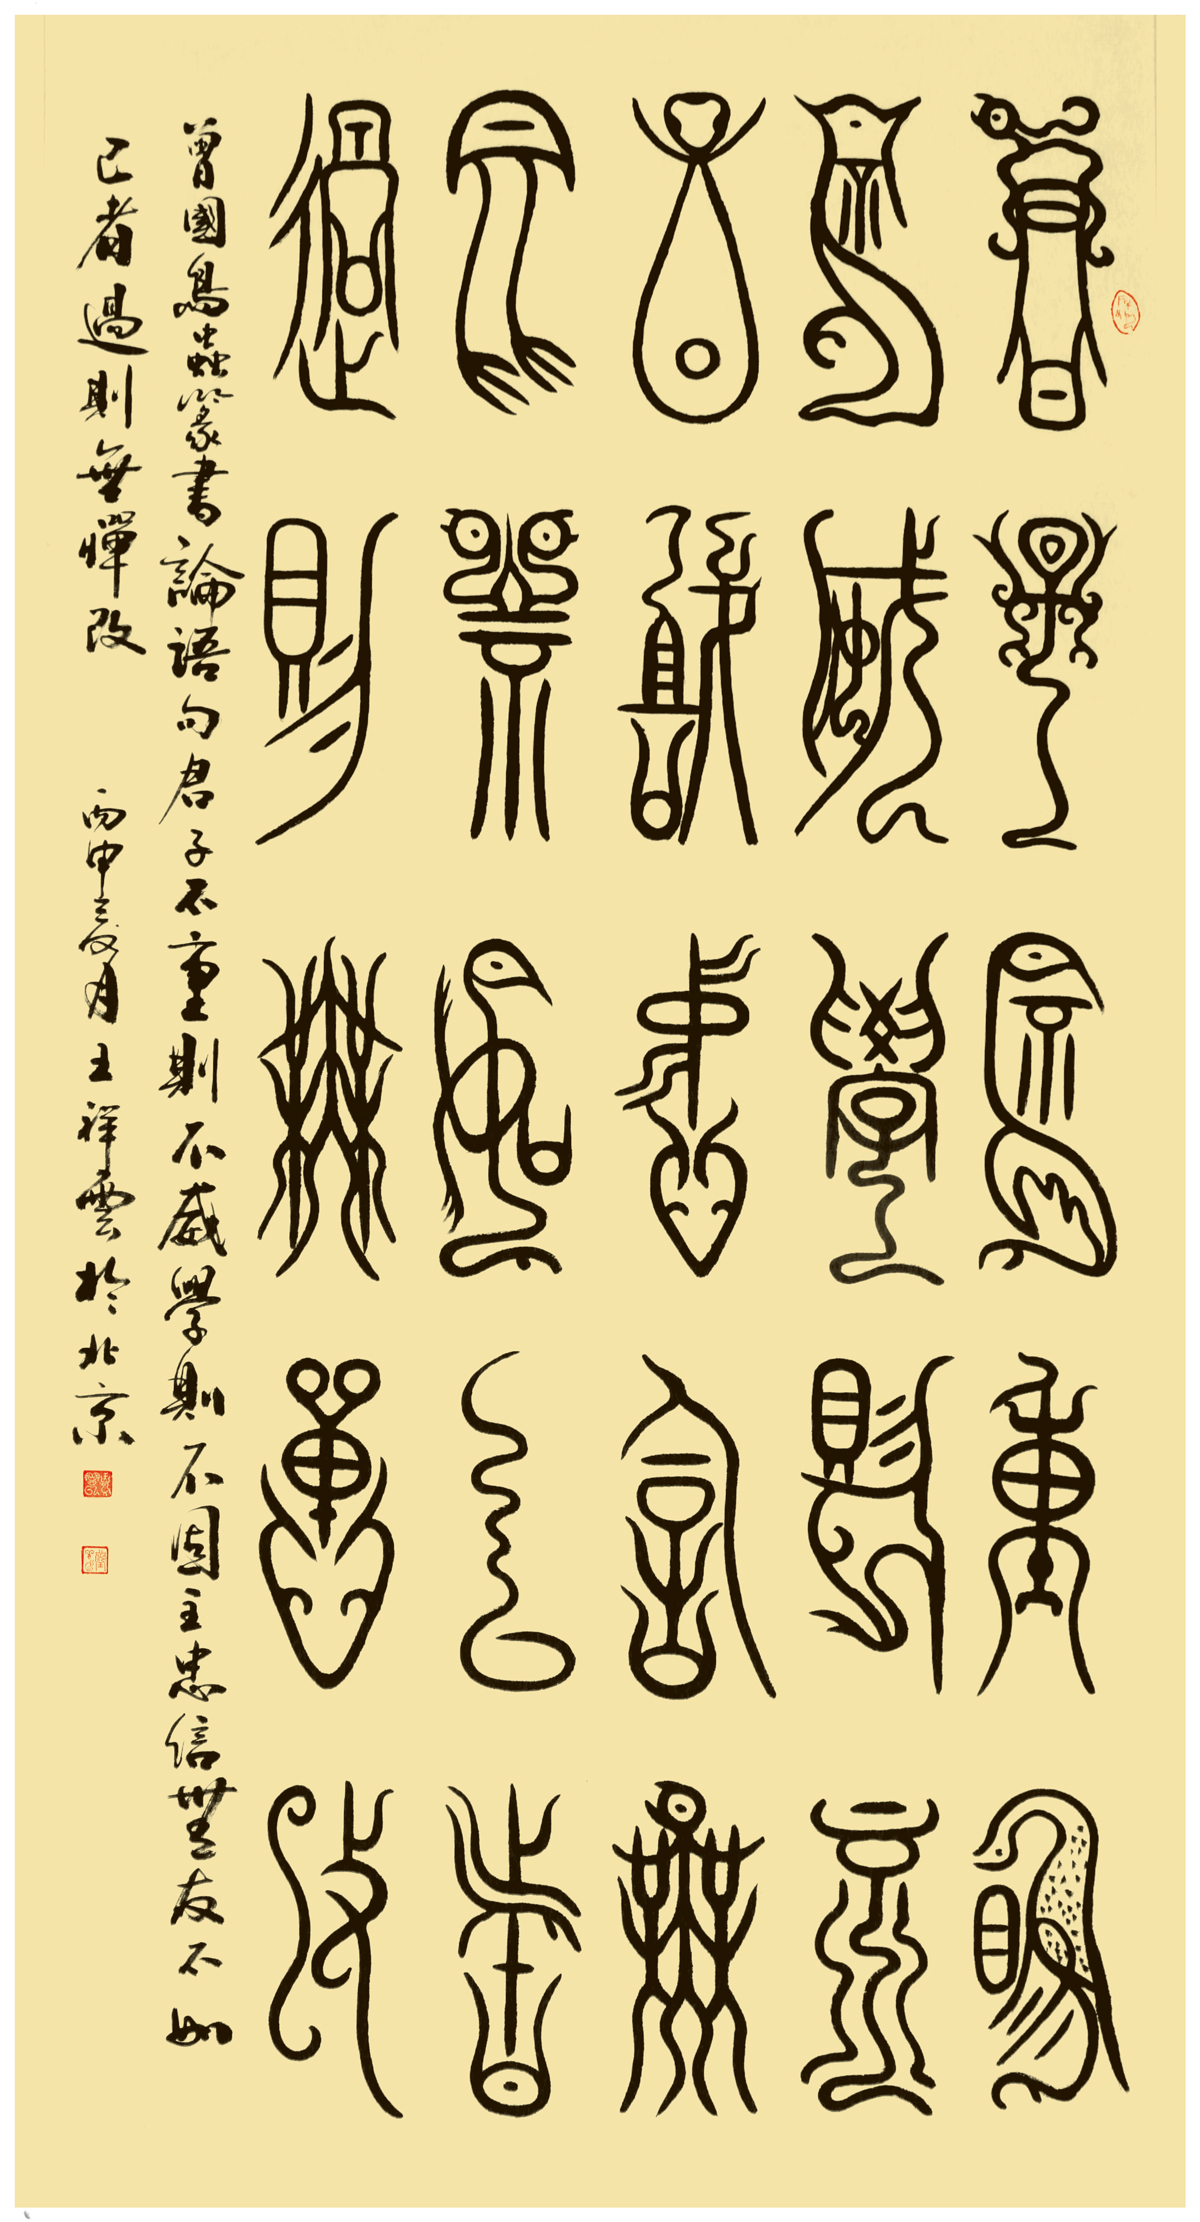 君子不重則
不威學則不
固主忠信無
友不如己者
過則無憚改
曾國鳥蟲篆書論語句君子不重則不威學則不固主忠信無友不如
己者過則無憚改 丙申夏月王祥雲於北京